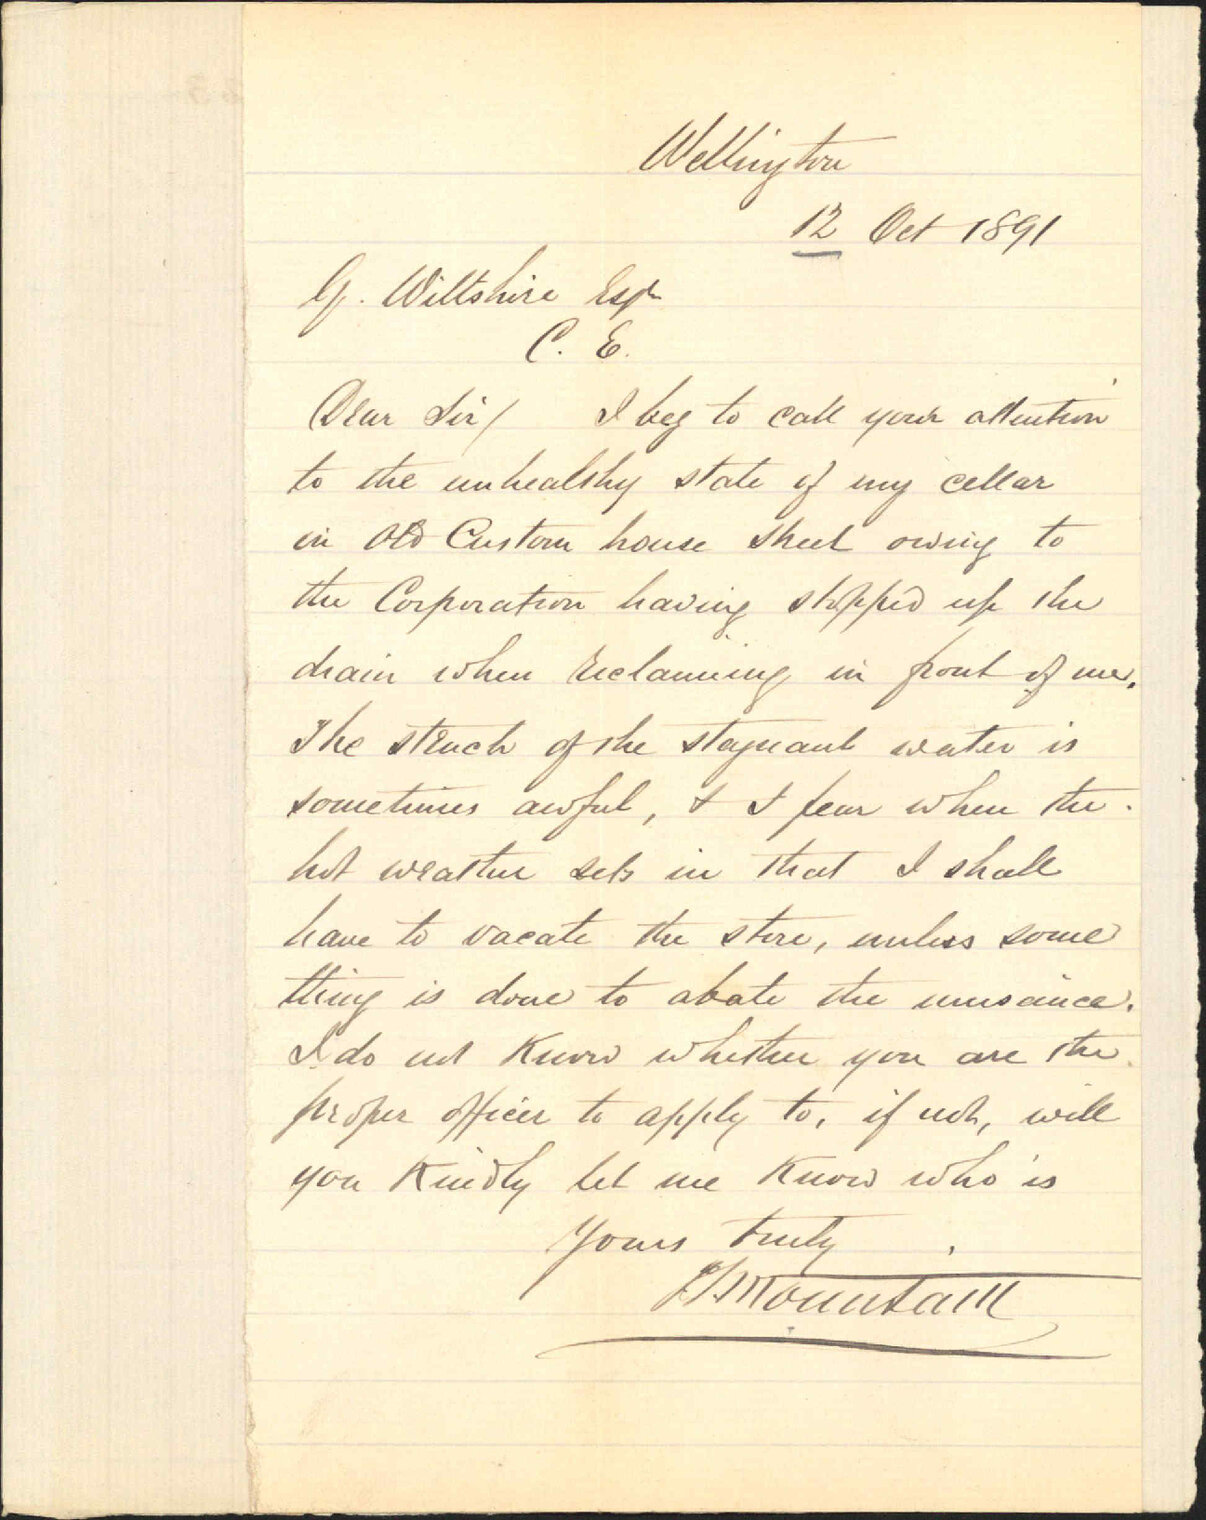 Wellington
12 Oct 1891
G. Wiltshire Esqr
C. E.
Dear Sir/ I beg to call your attention
to the unhealthy state of my cellar
in Old Custom house street owing to
the Corporation having stopped up the
drain when reclaiming in front of me.
The stench of the stagnant water is
sometimes awful, & I fear when the
hot weather sets in that I shall
have to vacate the store, unless some
thing is done to abate the nuisance.
I do not know whether you are the
proper officer to apply to, if not, will
you kindly let me know who is
Yours truly
Mountain